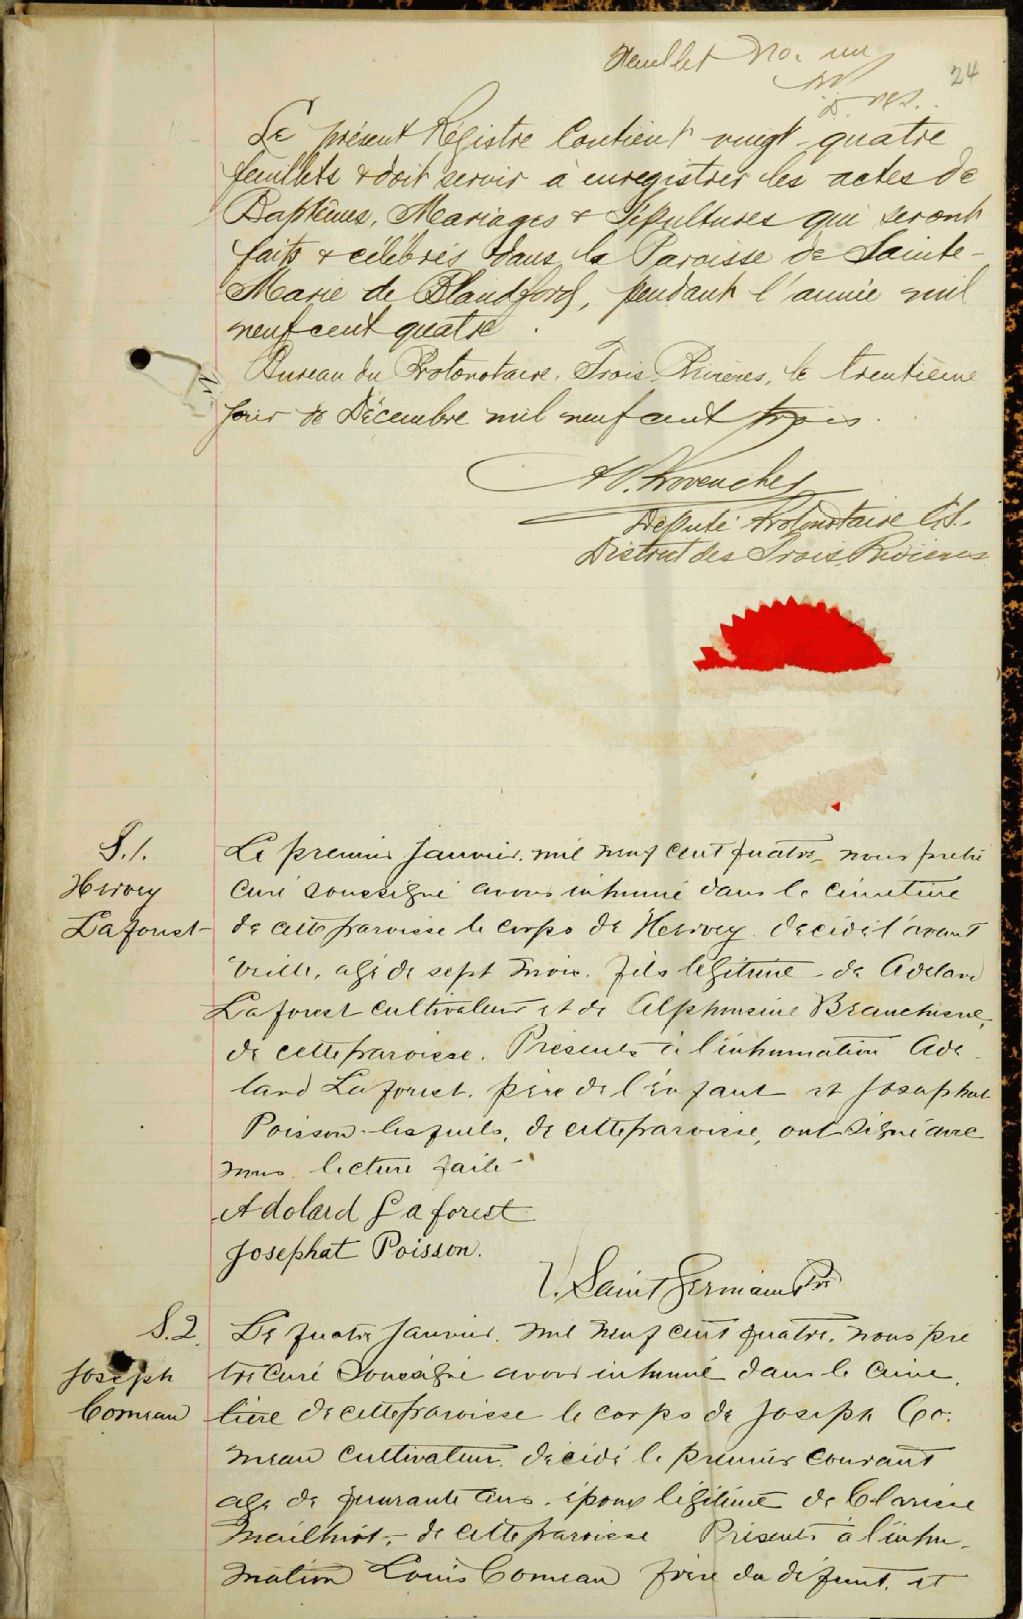 Feuillet No. un
24
Le présent Régistre Contient vingt-quatre
feuillets & doit servir à enregistrer les actes de
Baptêmes, Mariages & Sépultures qui seront
faits & célébrés dans la Paroisse de Sainte-
Marie de Blandford, pendant l'année mil
neuf cent quatre.
Bureau du Protonotaire, Trois-Rivières, le trentième
jour de Décembre mil neuf cent trois.
Député Protonotaire C.S.
District des Trois Rivières
S.1.
Hervey
Laforest
Le premier Janvier, mil neuf cent quatre, nous pretre
curé soussigné avons inhumé dans le cimetière
de cette paroisse le corps de Hervey décédé l'avant
veille, agé de sept mois, fils légitime de Adelard
Laforest cultivateur et de Alphonsine Branchaud,
de cette paroisse. Présents à l'inhumation Ade-
lard Laforest, père de l'enfant et Josaphat
Poisson lesquels, de cette paroisse, ont signé avec
nous, lecture faite
Adolard Laforest
Josephat Poisson.
V. Saint Germain Ptre
S.2.
Joseph
Comeau
Le quatre Janvier, mil neuf cent quatre, nous pre
tre curé soussigné avons inhumé dans le cime-
tière de cette paroisse le corps de Joseph Co-
meau cultivateur, décédé le premier courant
agé de quarante ans, époux légitime de Clarisse
Mailhiot, de cette paroisse Présents à l'inhu-
mation Louis Comeau frère du défunt, et